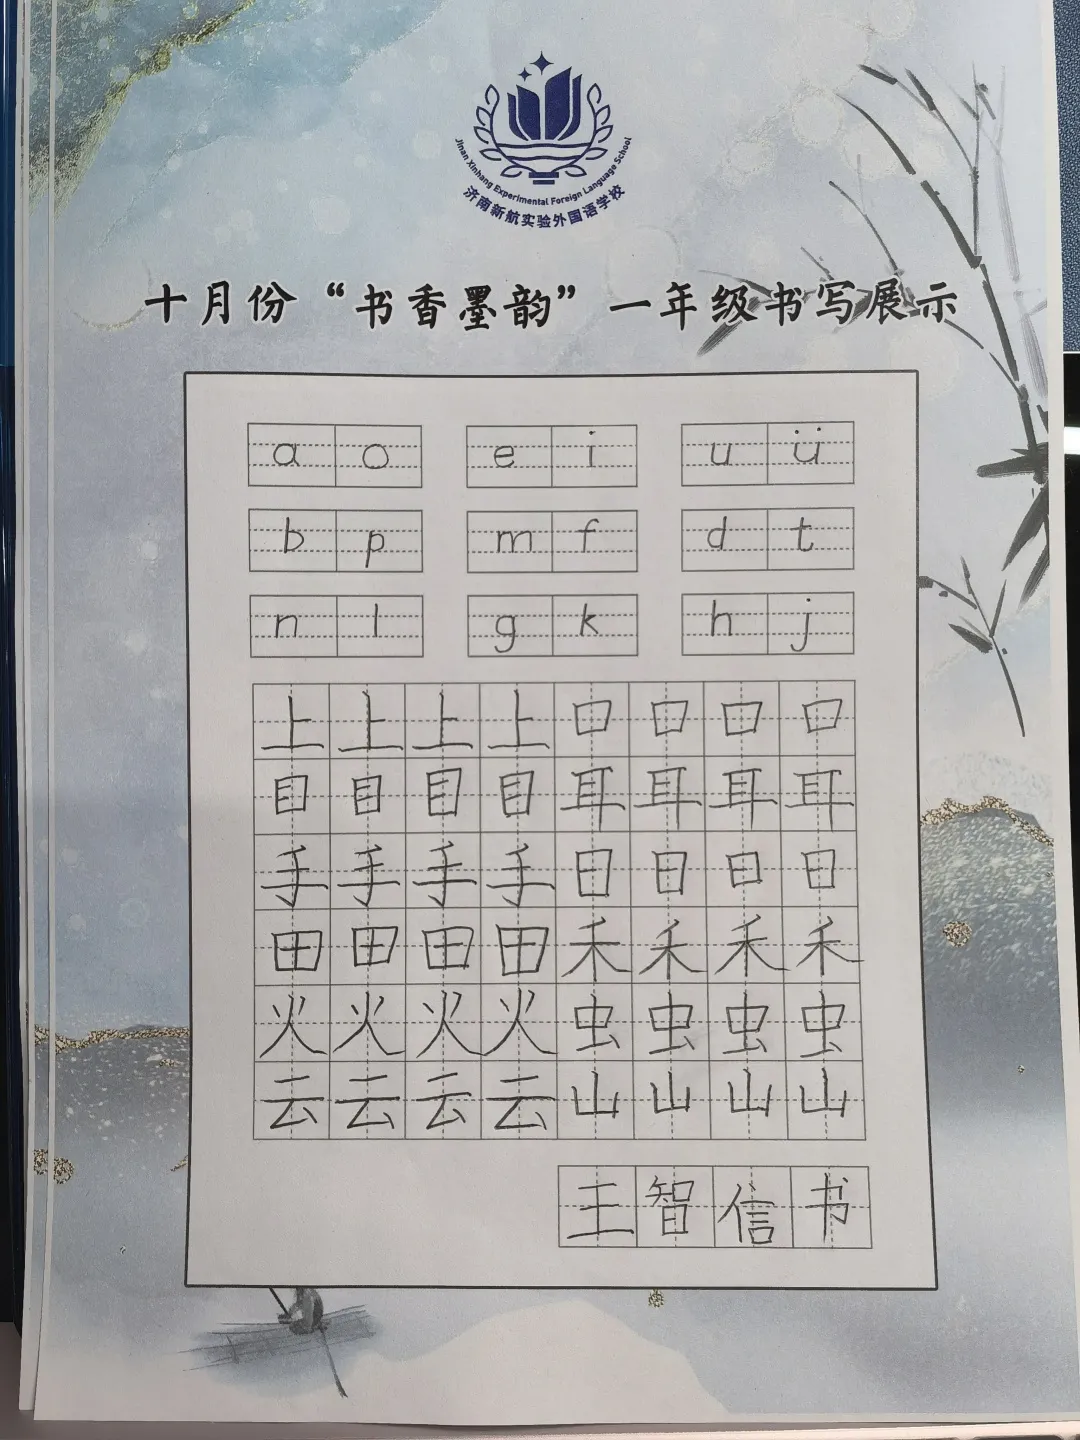 Jinan Xinhang Experimental Foreign Language School
济南新航实验外国语学校
十月份“书香墨韵”一年级书写展示
a o e i u ü
b p m f d t
n l g k h j
上上上上口口口口
目目目目耳耳耳耳
手手手手日日日日
田田田田禾禾禾禾
火火火火虫虫虫虫
云云云云山山山山
王智信书